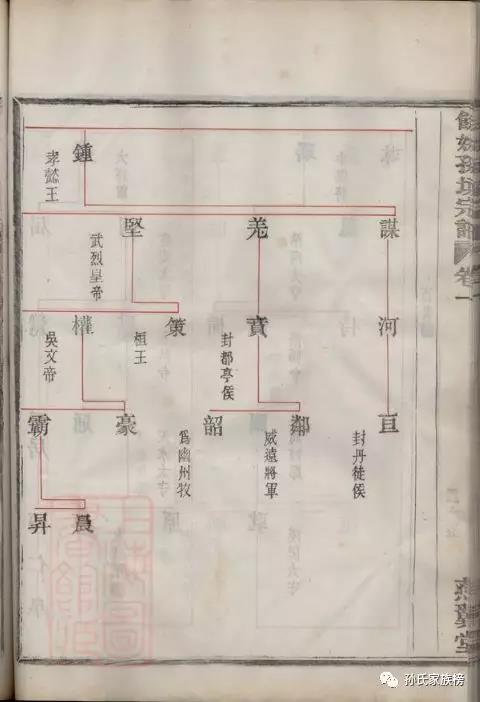 餘姚孫境宗譜 卷一
燕翼堂
鍾
孝懿王
謀
羌
堅
武烈皇帝
河
賁
封都亭侯
策
桓王
權
吳文帝
亘
封丹徒侯
鄰
威遠將軍
韶
爲幽州牧
豪
霸
晨
昇
孙氏家族榜